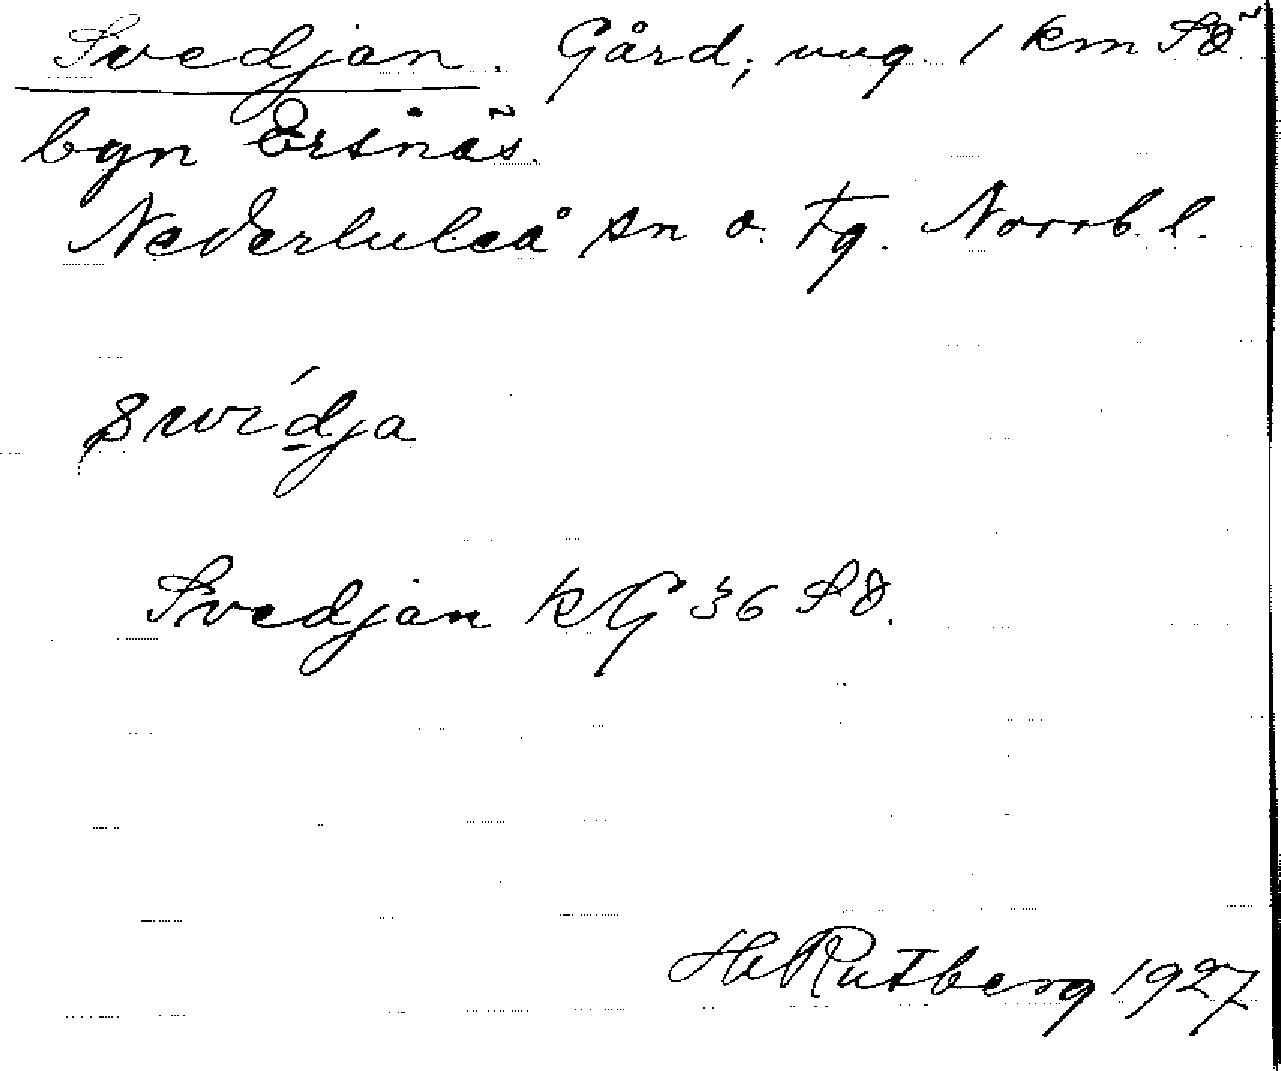 Svedjan. Gård, ung. 1 km SÖ
byn Ersnäs.
Nederluleå sn o. tg. Norrb. l.
svídja
Svedjan kG 36 SÖ.
H Rutberg 1927